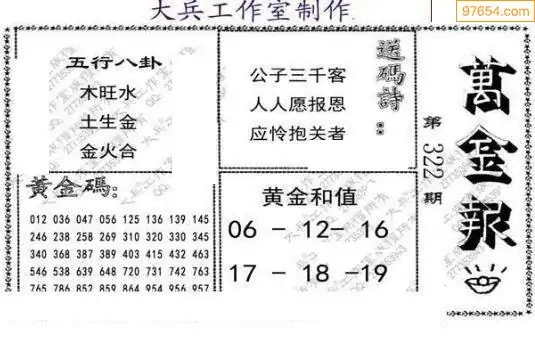 大兵工作室制作
97654.com
五行八卦
木旺水
土生金
金火合
送碼詩：
公子三千客
人人愿报恩
应怜抱关者
萬金報
第322期
黄金碼：
012 036 047 056 125 136 139 145
246 238 258 269 310 320 330 345
340 368 387 389 403 415 432 463
546 538 639 648 720 731 742 763
765 786 852 859 864 954 956 957
黄金和值
06 - 12 - 16
17 - 18 - 19